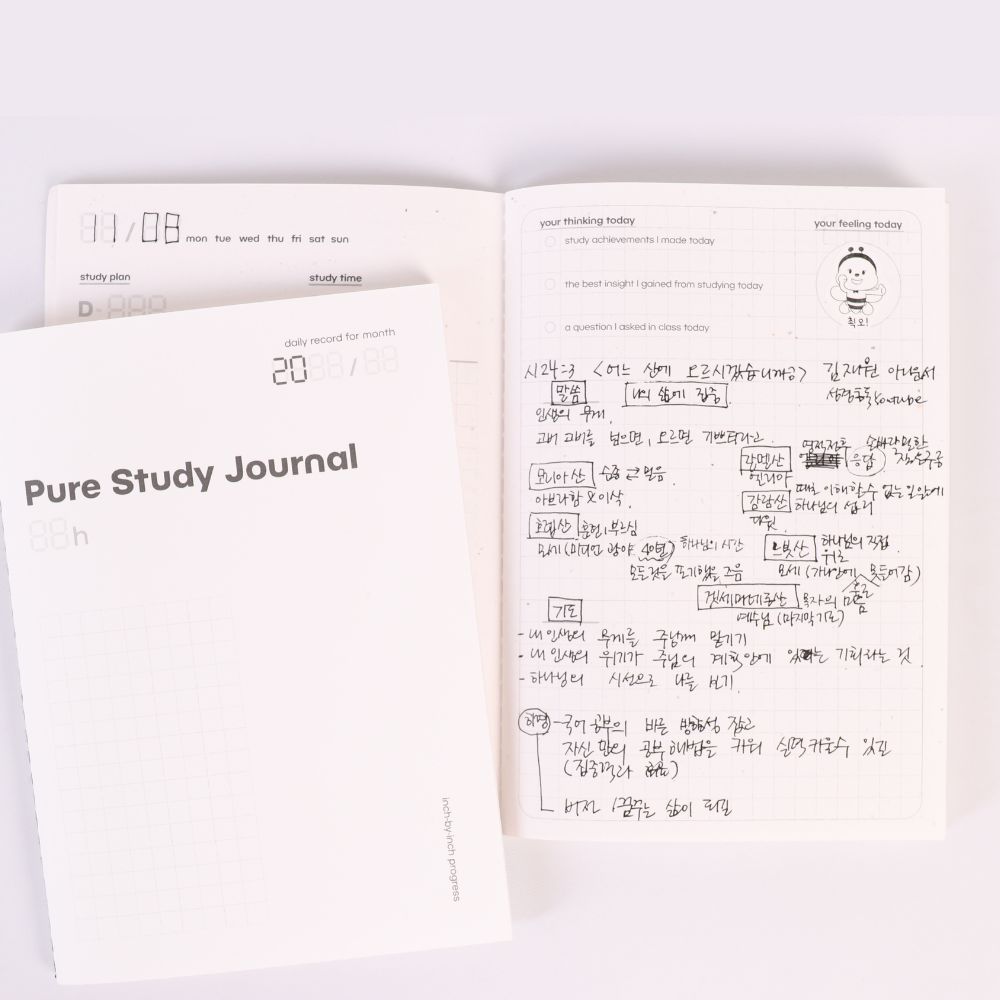 11/08 mon tue wed thu fri sat sun
study plan
study time
D-
daily record for month
20
Pure Study Journal
h
inch-by-inch progress
your thinking today
your feeling today
study achievements I made today
the best insight I gained from studying today
a question I asked in class today
최고!
시24:3 <어느 산에 오르시겠습니까?> 김재원 아나운서
말씀 나의 삶에 집중 성경통독 Youtube
인생의 무게
고비 고비를 넘으면, 오르면 기쁘더라고.
모리아산 순종 ⇄ 믿음
아브라함 & 이삭
호렙산 훈련, 부르심
모세(미디안 광야 40년) 하나님의 시간
모든것을 포기했을 즈음
갈멜산 영적전투 응답 손바닥만한 작은구름
엘리야
감람산 때로 이해할수 없는 일앞에
하나님의 섭리
다윗
느보산 하나님의 직접
위로
모세(가나안에 못들어감)
겟세마네동산
예수님(마지막기도)
기도
- 내 인생의 무게를 주님께 맡기기
- 내 인생의 위기가 주님의 계획안에 있는 기회라는 것
- 하나님의 시선으로 나를 보기.
- 국어 공부의 바른 방향성 잡고
자신만의 공부해법을 키워 실력키울수 있길
(집중력과
비전, 꿈꾸는 삶이 되길